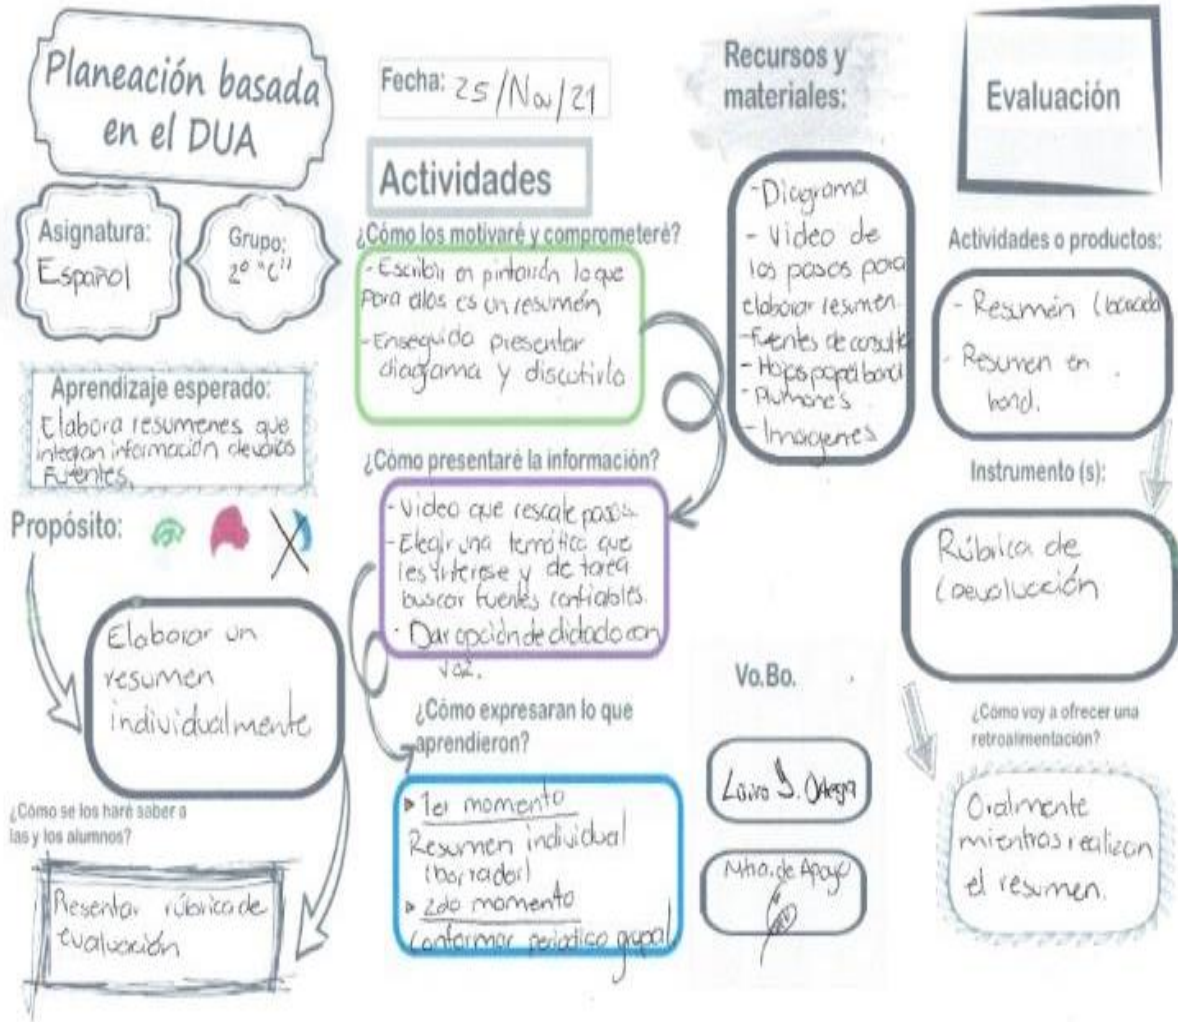 Planeación basada
en el DUA
Asignatura:
Español
Grupo:
2° "C"
Aprendizaje esperado:
Elabora resumenes que
integran información de varios
Fuentes.
Propósito:
Elaborar un
resumen
individualmente
¿Cómo se los haré saber a
las y los alumnos?
Presentar rúbrica de
evaluación
Fecha: 25/Nov/21
Actividades
¿Cómo los motivaré y comprometeré?
- Escribir en pintarrón lo que
para ellos es un resumén
- Enseguida presentar
diagrama y discutirlo
¿Cómo presentaré la información?
- Video que rescate pasos.
- Elegir una temática que
les interese y de tarea
buscar fuentes confiables.
- Dar opción de dictado con
voz.
¿Cómo expresaran lo que
aprendieron?
▸ 1er momento
Resumen individual
(borrador)
▸ 2do momento
Conformar periodico grupal
Recursos y
materiales:
- Diagrama
- Video de
los pasos para
elaborar resumen.
- Fuentes de consulta
- Hojas papel bond
- Plumones
- Imágenes
Vo.Bo.
Ortega
Mtra. de Apoyo
Evaluación
Actividades o productos:
- Resumén
- Resumen en
bond.
Instrumento (s):
Rúbrica de
coevaluación
¿Cómo voy a ofrecer una
retroalimentación?
Oralmente
mientras realizan
el resumen.